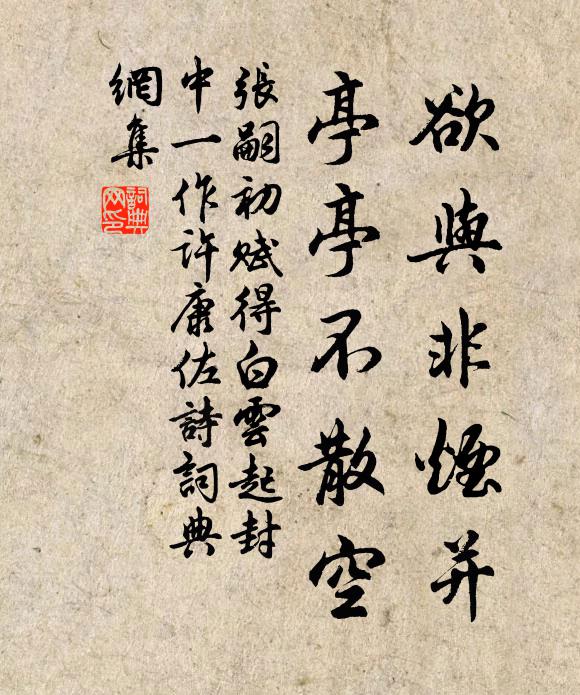 欲與非煙并
亭亭不散空
張嗣初賦得白雲起封
中一作許康佐詩詞典
網集
詞典網印